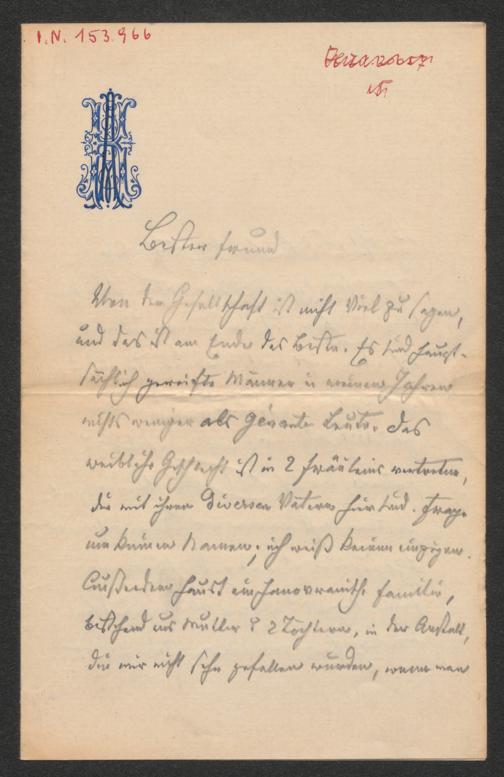 I.N. 153.966
Bester Freund
Von der Gesellschaft ist nicht viel zu sagen,
und das ist am Ende das Beste. Es sind haupt-
sächlich gereifte Männer u meinen Jahren
nichts weniger als genante Leute. Das
weibliche Geschlecht ist in 2 Fräuleins vertreten,
die mit ihren diversen Vätern hier sind. Frage
um keinen Namen, ich weiß keinen einzigen.
Außerdem haust eine Familie,
bestehend aus Mutter & 2 Töchtern, in der Anstalt,
die mir nicht sehr gefallen würden, wenn man